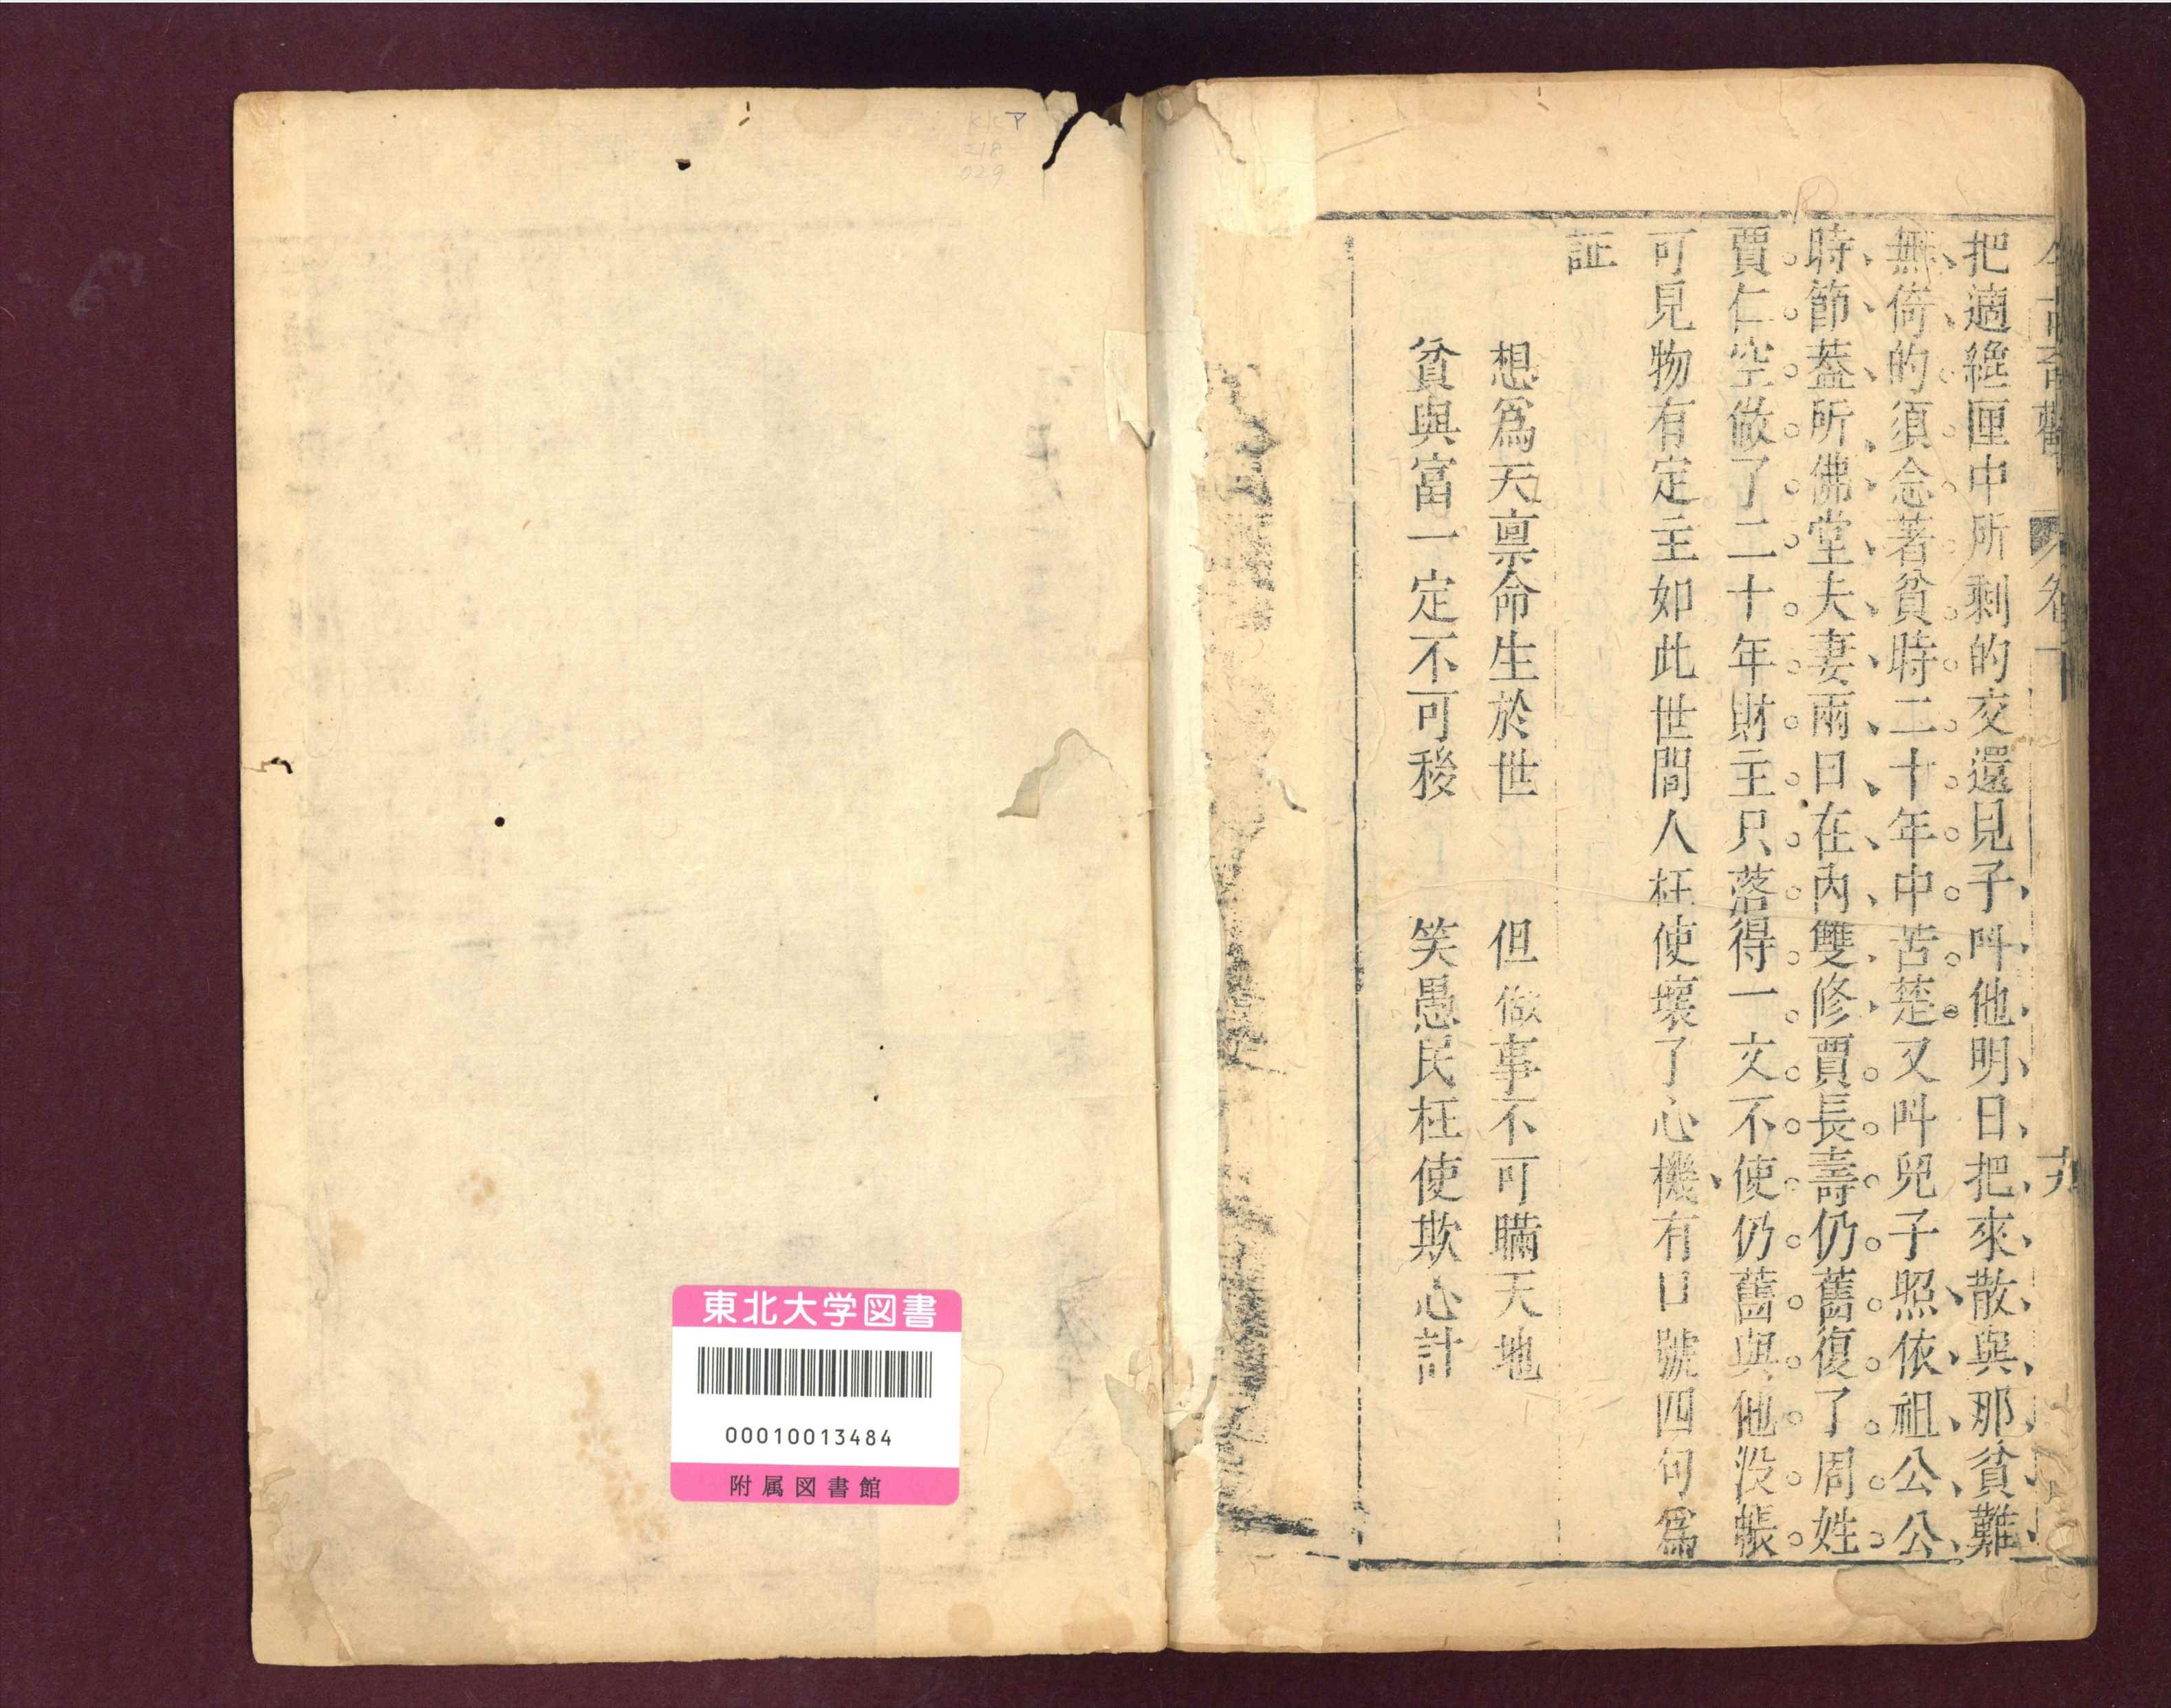 今古奇觀 卷十 十九
把適纔匣中所剩的交還見子叫他明日把來散與那貧難
無倚的須念著貧時二十年中苦楚又叫兒子照依祖公公
時節蓋所佛堂夫妻兩日在內雙修賈長壽仍舊復了周姓
賈仁空做了二十年財主只落得一文不使仍舊與他沒帳
可見物有定主如此世間人枉使壞了心機有口號四句為
証
想爲天禀命生於世 但做事不可瞞天地
貧與富一定不可移 笑愚民枉使欺心計
東北大学図書
00010013484
附属図書館